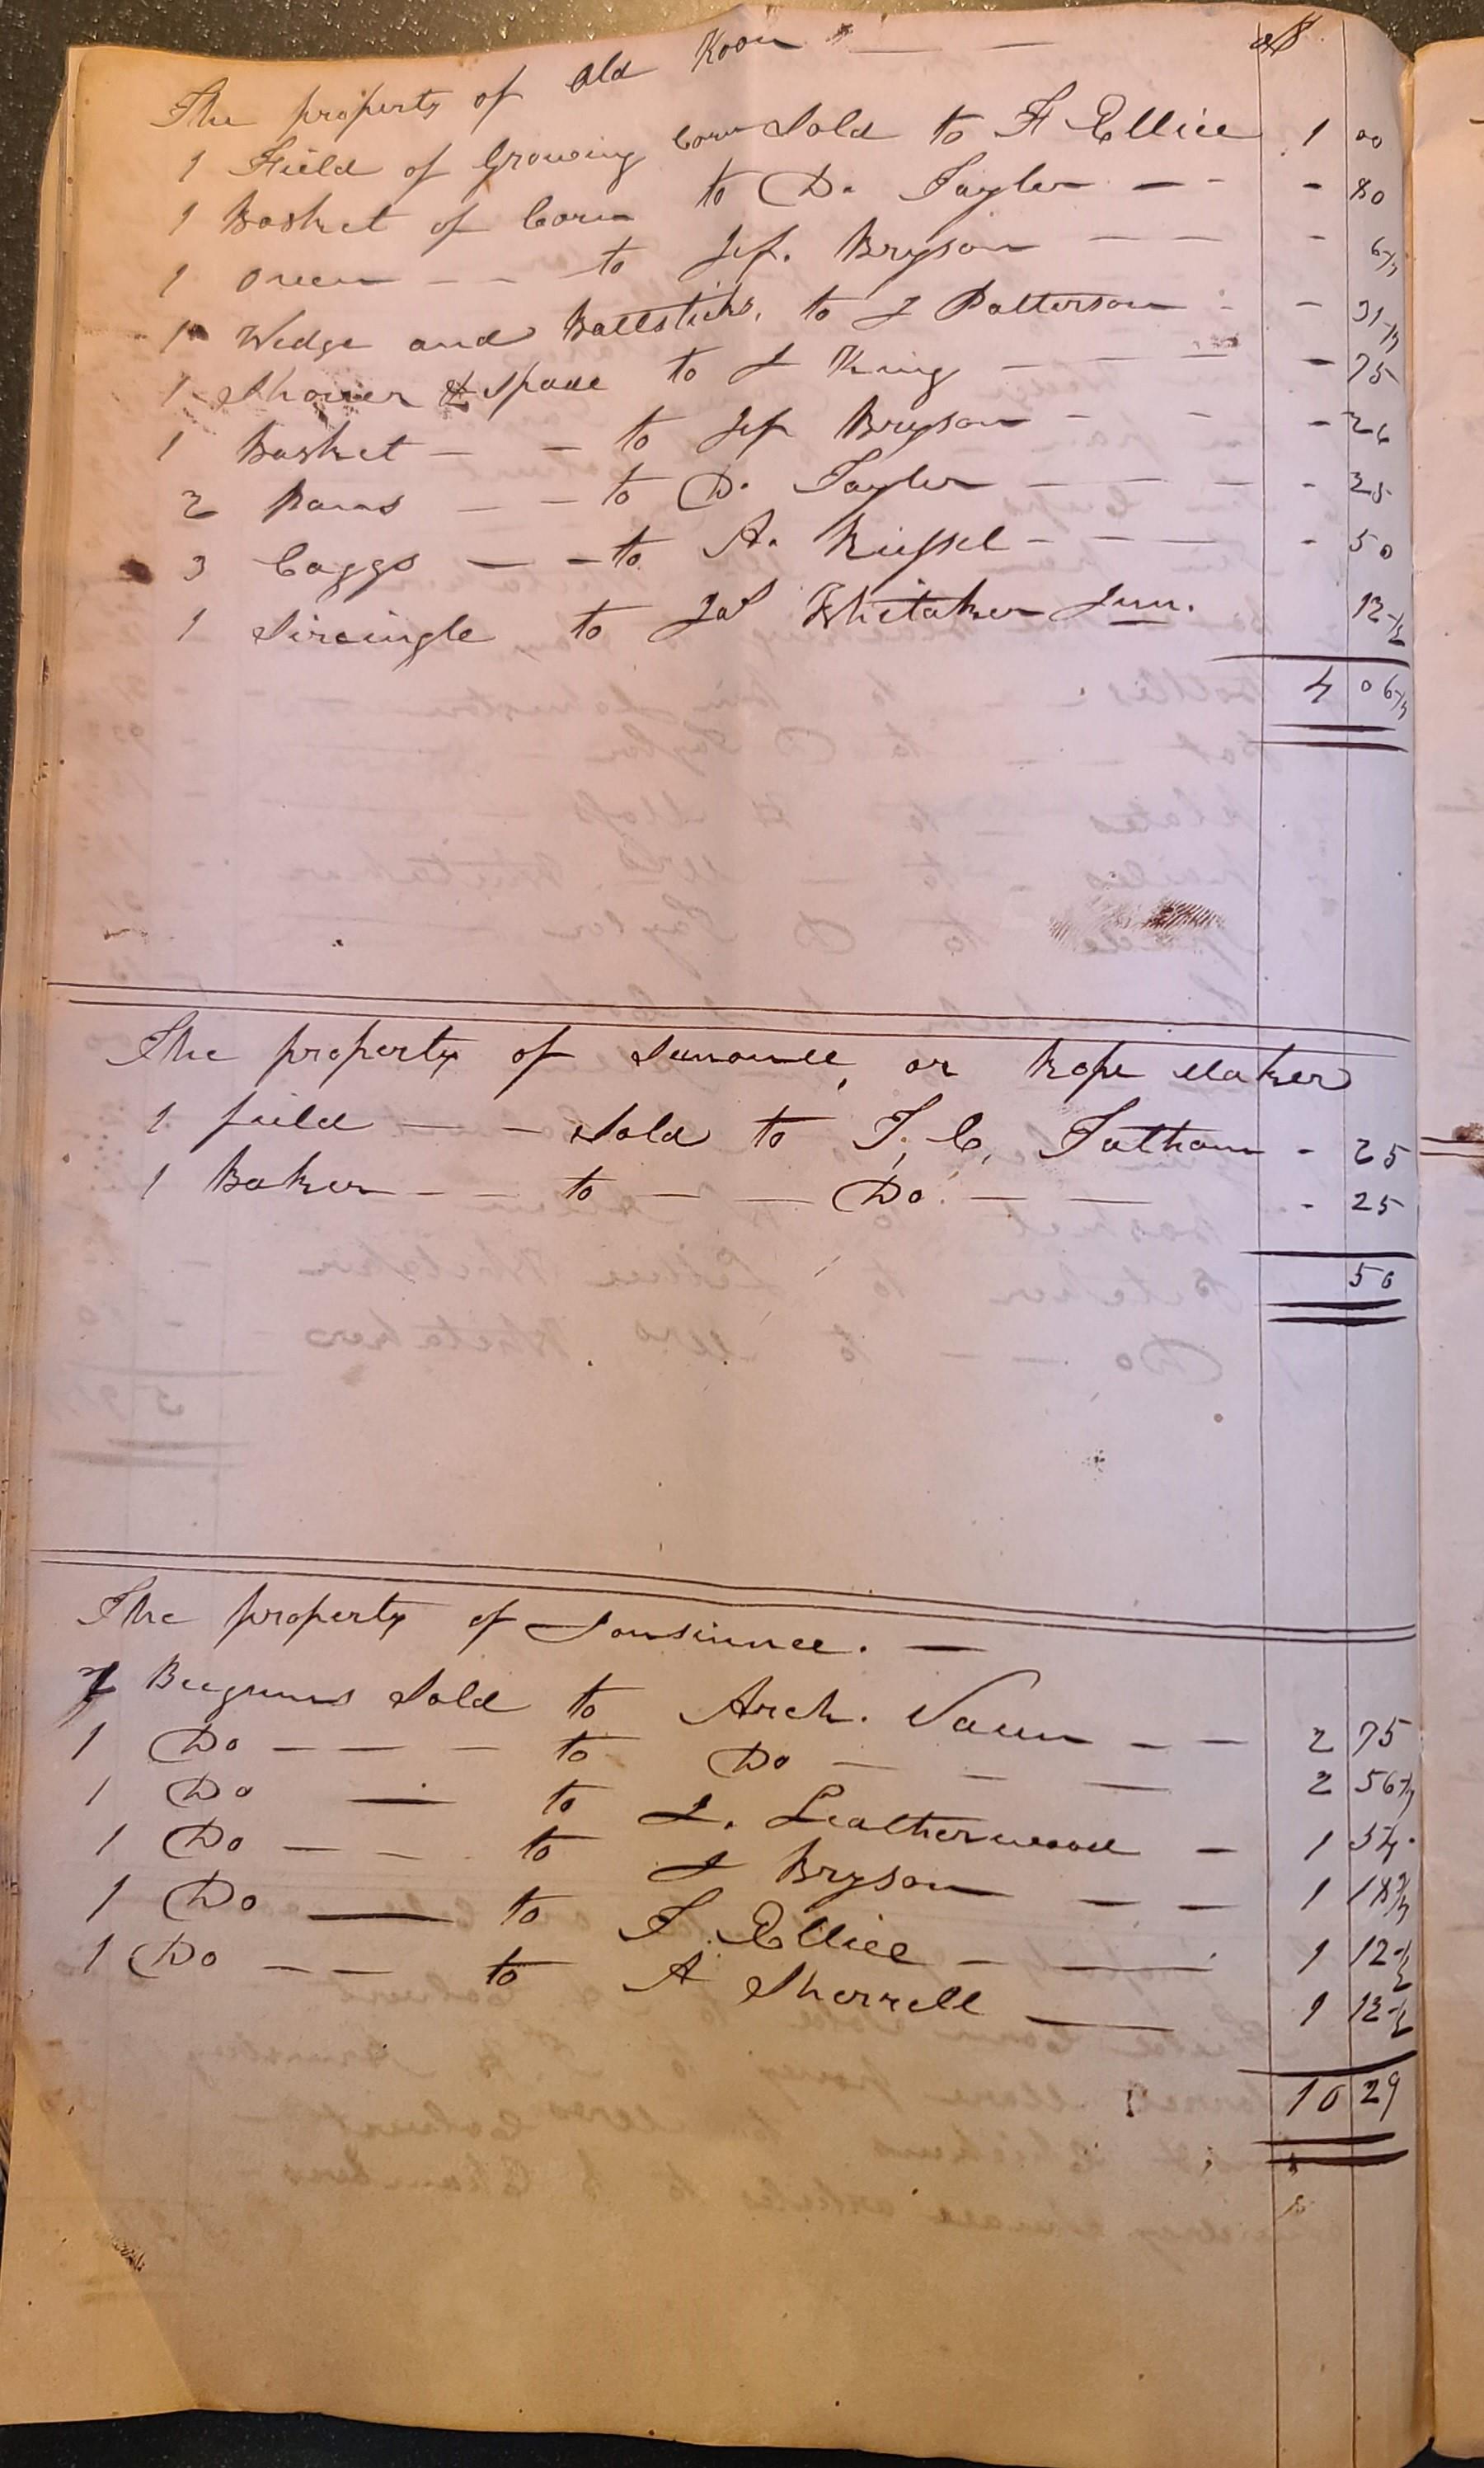 The property of Old Koon — — $
1 Field of Growing Corn Sold to F Ellice 1 00
1 Basket of Corn to D. Tayler — - - 80
1 Oven — — to Jef. Bryson — — - 6 1/3
1 Wedge and Ballsticks, to J Patterson - - 31 1/3
1 Shovel & Spade to J King — — — - 75
1 Basket — — to Jef Bryson - - - 26
2 Pans — — to D. Tayler — — — - 25
3 Caggs — — to A. Kissel - — — - 50
1 Sircingle to Jas Whitaker Junr. 12 1/2
4 06 1/3
The property of or Rope Maker
1 field — — Sold to T. C. Tatham - 25
1 Baker — — to — — Do. — — - 25
50
The property of
1 Beegums Sold to Arch. Vaun — — 2 75
1 Do — — — to Do — — — 2 56 1/3
1 Do — to J. Leatherwood — 1 54
1 Do — — to J Bryson — — 1 18 2/3
1 Do — to F. Ellice — — 1 12 1/2
1 Do — — to A Sherrell — 1 12 1/2
10 29